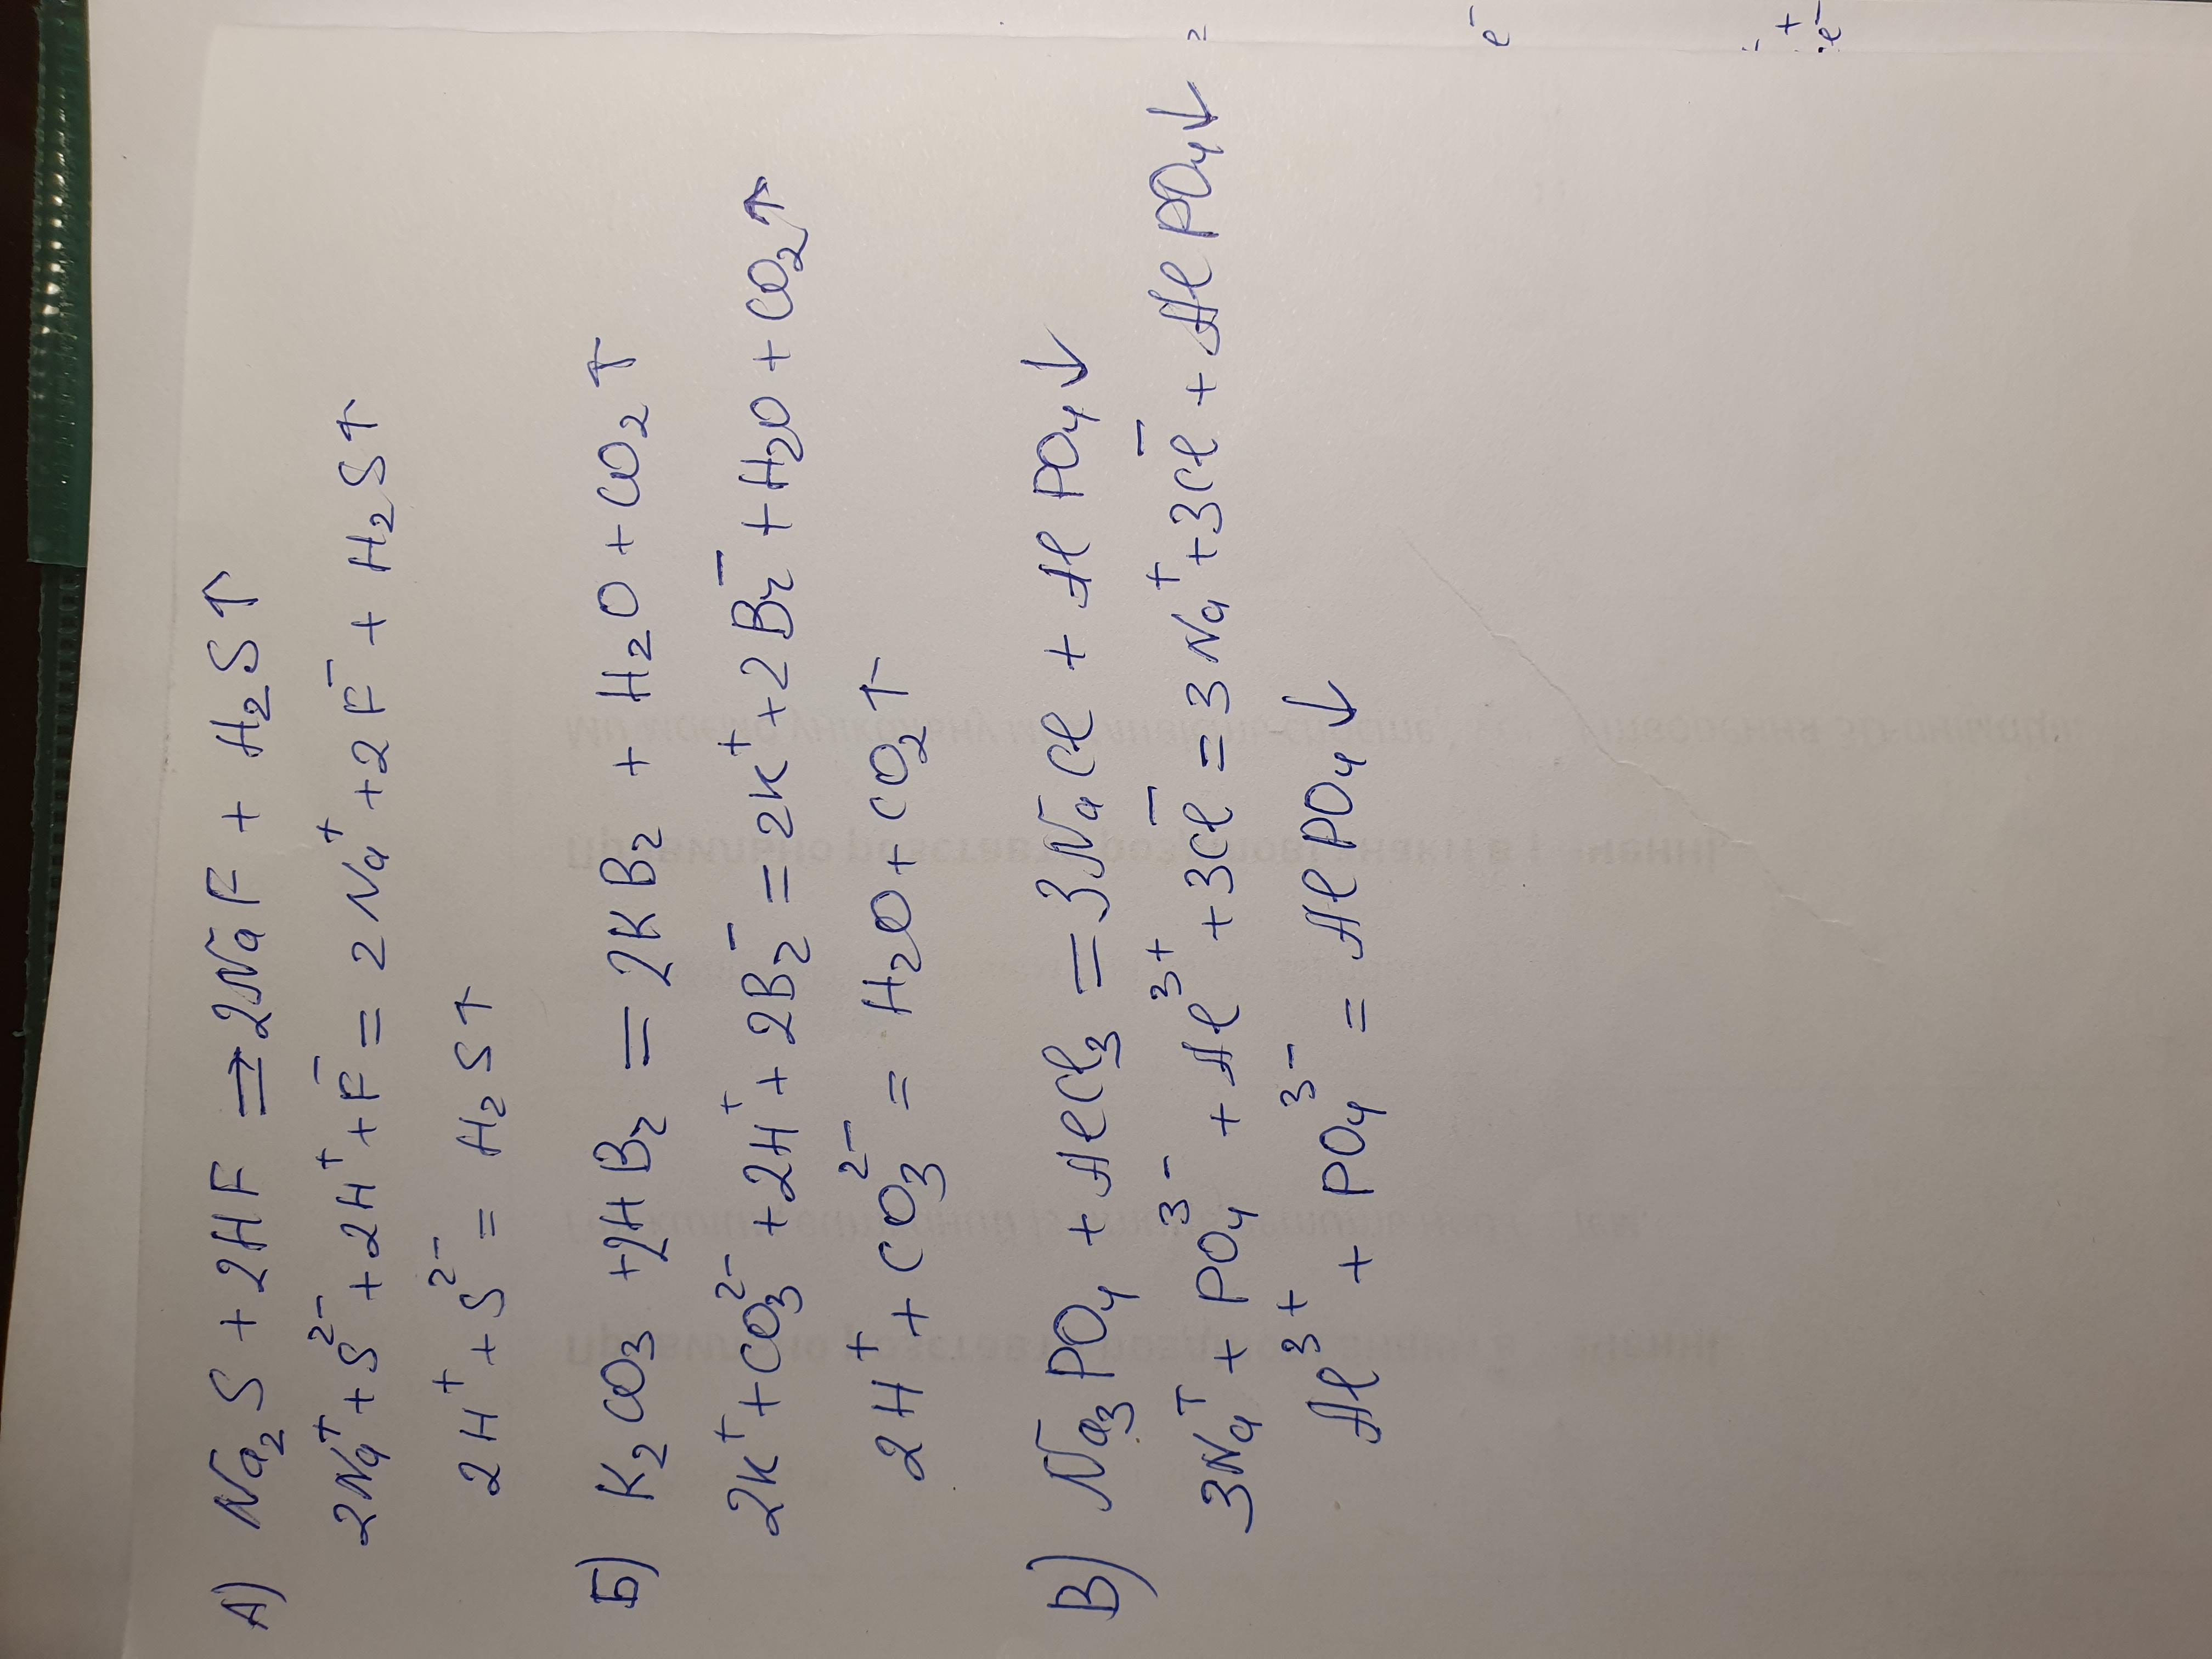 А) Na₂S + 2HF ⇒ 2NaF + H₂S↑
2Na⁺ + S²⁻ + 2H⁺ + F⁻ = 2Na⁺ + 2F⁻ + H₂S↑
2H⁺ + S²⁻ = H₂S↑
Б) K₂CO₃ + 2HBr = 2KBr + H₂O + CO₂↑
2K⁺ + CO₃²⁻ + 2H⁺ + 2Br⁻ = 2K⁺ + 2Br⁻ + H₂O + CO₂↑
2H⁺ + CO₃²⁻ = H₂O + CO₂↑
В) Na₃PO₄ + AlCl₃ = 3NaCl + AlPO₄↓
3Na⁺ + PO₄³⁻ + Al³⁺ + 3Cl⁻ = 3Na⁺ + 3Cl⁻ + AlPO₄↓
Al³⁺ + PO₄³⁻ = AlPO₄↓